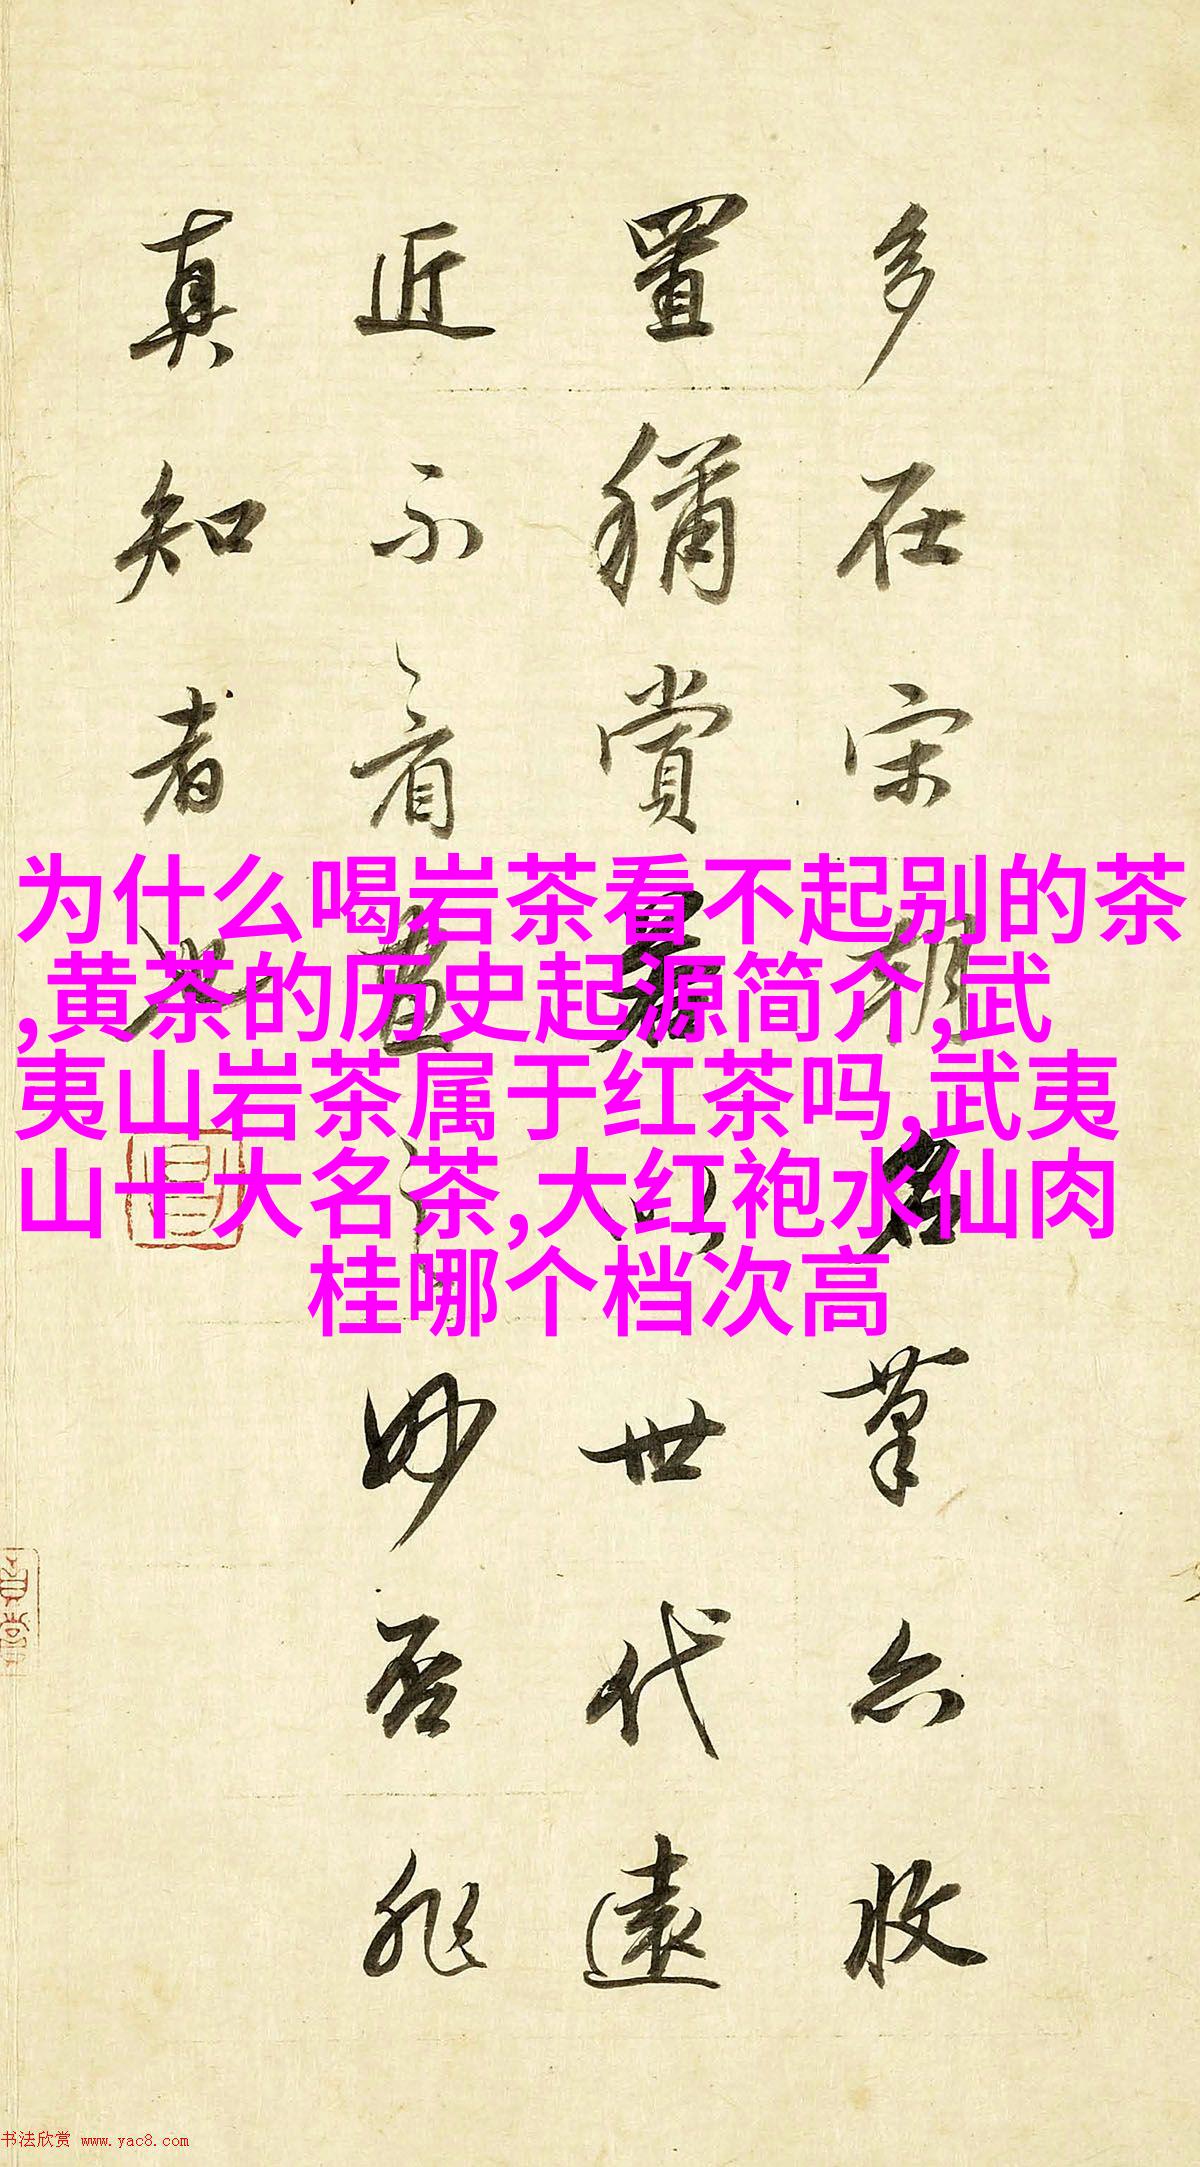 多在宋名筆亦收
置猶賞以世代遠
近不看畫妙否非
真知者也
为什么喝岩茶看不起别的茶
,黄茶的历史起源简介,武
夷山岩茶属于红茶吗,武夷
山十大名茶,大红袍水仙肉
桂哪个档次高
书法欣赏 www.yac8.com